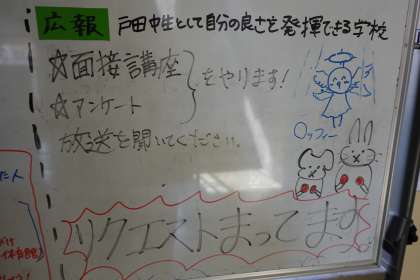 広報 戸田中生として自分の良さを発揮できる学校
☆面接講座
☆アンケート
をやります!
放送を聞いてください。
ロッフィー
リクエストまってます
た人